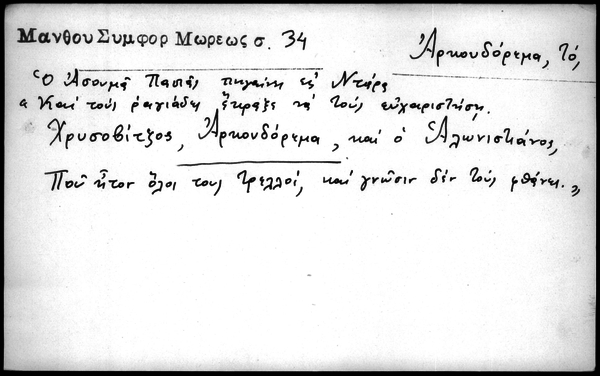 Μανθου Συμφορ Μωρεως σ. 34
Ἀρκουδόρεμα, τό,
Ὁ Ἀσουμᾶ Πασιᾶς πηγαίνη εἰς
« Καί τούς ραγιάδες ἔκραξε νά τούς εὐχαριστήση,
Χρυσοβίτζος, Ἀρκουδόρεμα, καί ὁ Ἁλωνιστιάνος,
Ποῦ ἦτον ὅλοι τους τρελλοί, καί γνῶσιν δέν τούς φθάνει. »